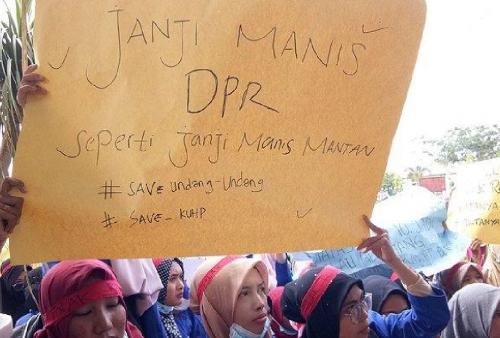 JANJI MANIS
DPR
sepeRti janji Manis MANTAN
# SAVE Undang-Undang
# SAVE_KUHP